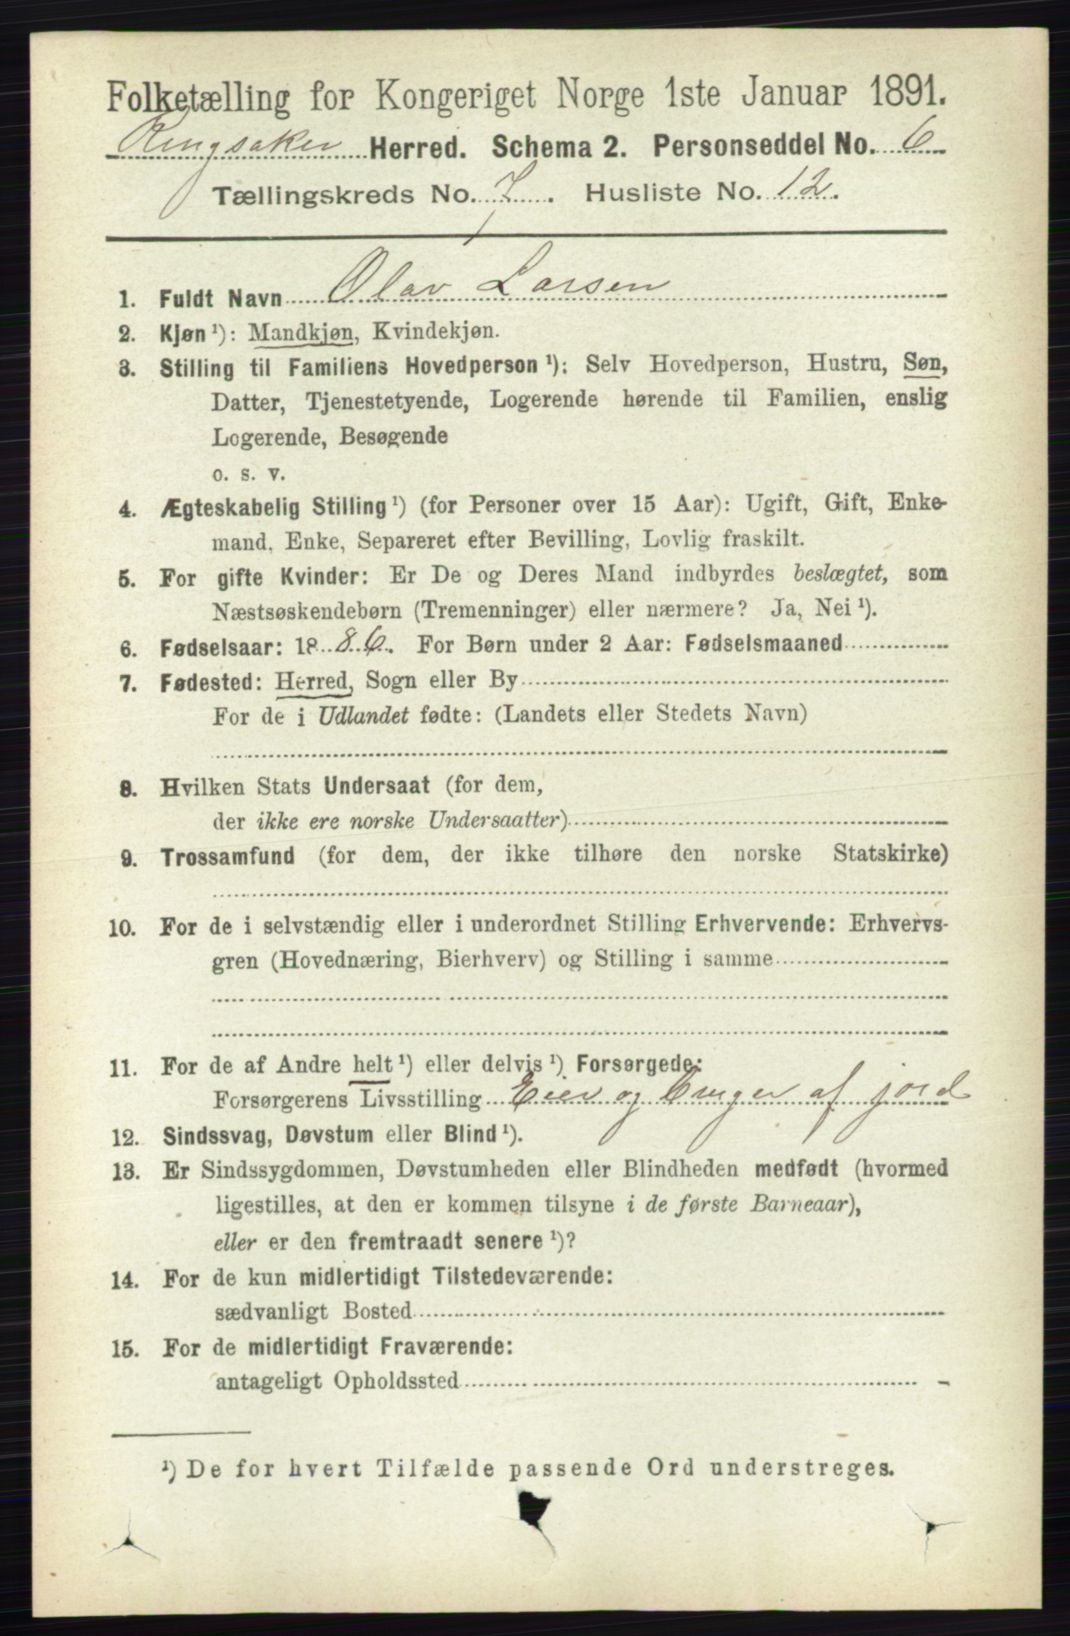 Folketælling for Kongeriget Norge 1ste Januar 1891.
Ringsaker Herred. Schema 2. Personseddel No. 6
Tællingskreds No. 7. Husliste No. 12.
1. Fuldt Navn Olav Larsen
2. Kjøn ¹): Mandkjøn, Kvindekjøn.
3. Stilling til Familiens Hovedperson ¹): Selv Hovedperson, Hustru, Søn,
Datter, Tjenestetyende, Logerende hørende til Familien, enslig
Logerende, Besøgende
o. s. v.
4. Ægteskabelig Stilling ¹) (for Personer over 15 Aar): Ugift, Gift, Enke-
mand, Enke, Separeret efter Bevilling, Lovlig fraskilt.
5. For gifte Kvinder: Er De og Deres Mand indbyrdes beslægtet, som
Næstsøskendebørn (Tremenninger) eller nærmere? Ja, Nei ¹).
6. Fødselsaar: 18 86. For Børn under 2 Aar: Fødselsmaaned
7. Fødested: Herred, Sogn eller By
For de i Udlandet fødte: (Landets eller Stedets Navn)
8. Hvilken Stats Undersaat (for dem,
der ikke ere norske Undersaatter)
9. Trossamfund (for dem, der ikke tilhøre den norske Statskirke)
10. For de i selvstændig eller i underordnet Stilling Erhvervende: Erhvervs-
gren (Hovednæring, Bierhverv) og Stilling i samme
11. For de af Andre helt ¹) eller delvis ¹) Forsørgede:
Forsørgerens Livsstilling Eier og Bruger af jord
12. Sindssvag, Døvstum eller Blind ¹).
13. Er Sindssygdommen, Døvstumheden eller Blindheden medfødt (hvormed
ligestilles, at den er kommen tilsyne i de første Barneaar),
eller er den fremtraadt senere ¹)?
14. For de kun midlertidigt Tilstedeværende:
sædvanligt Bosted
15. For de midlertidigt Fraværende:
antageligt Opholdssted
¹) De for hvert Tilfælde passende Ord understreges.